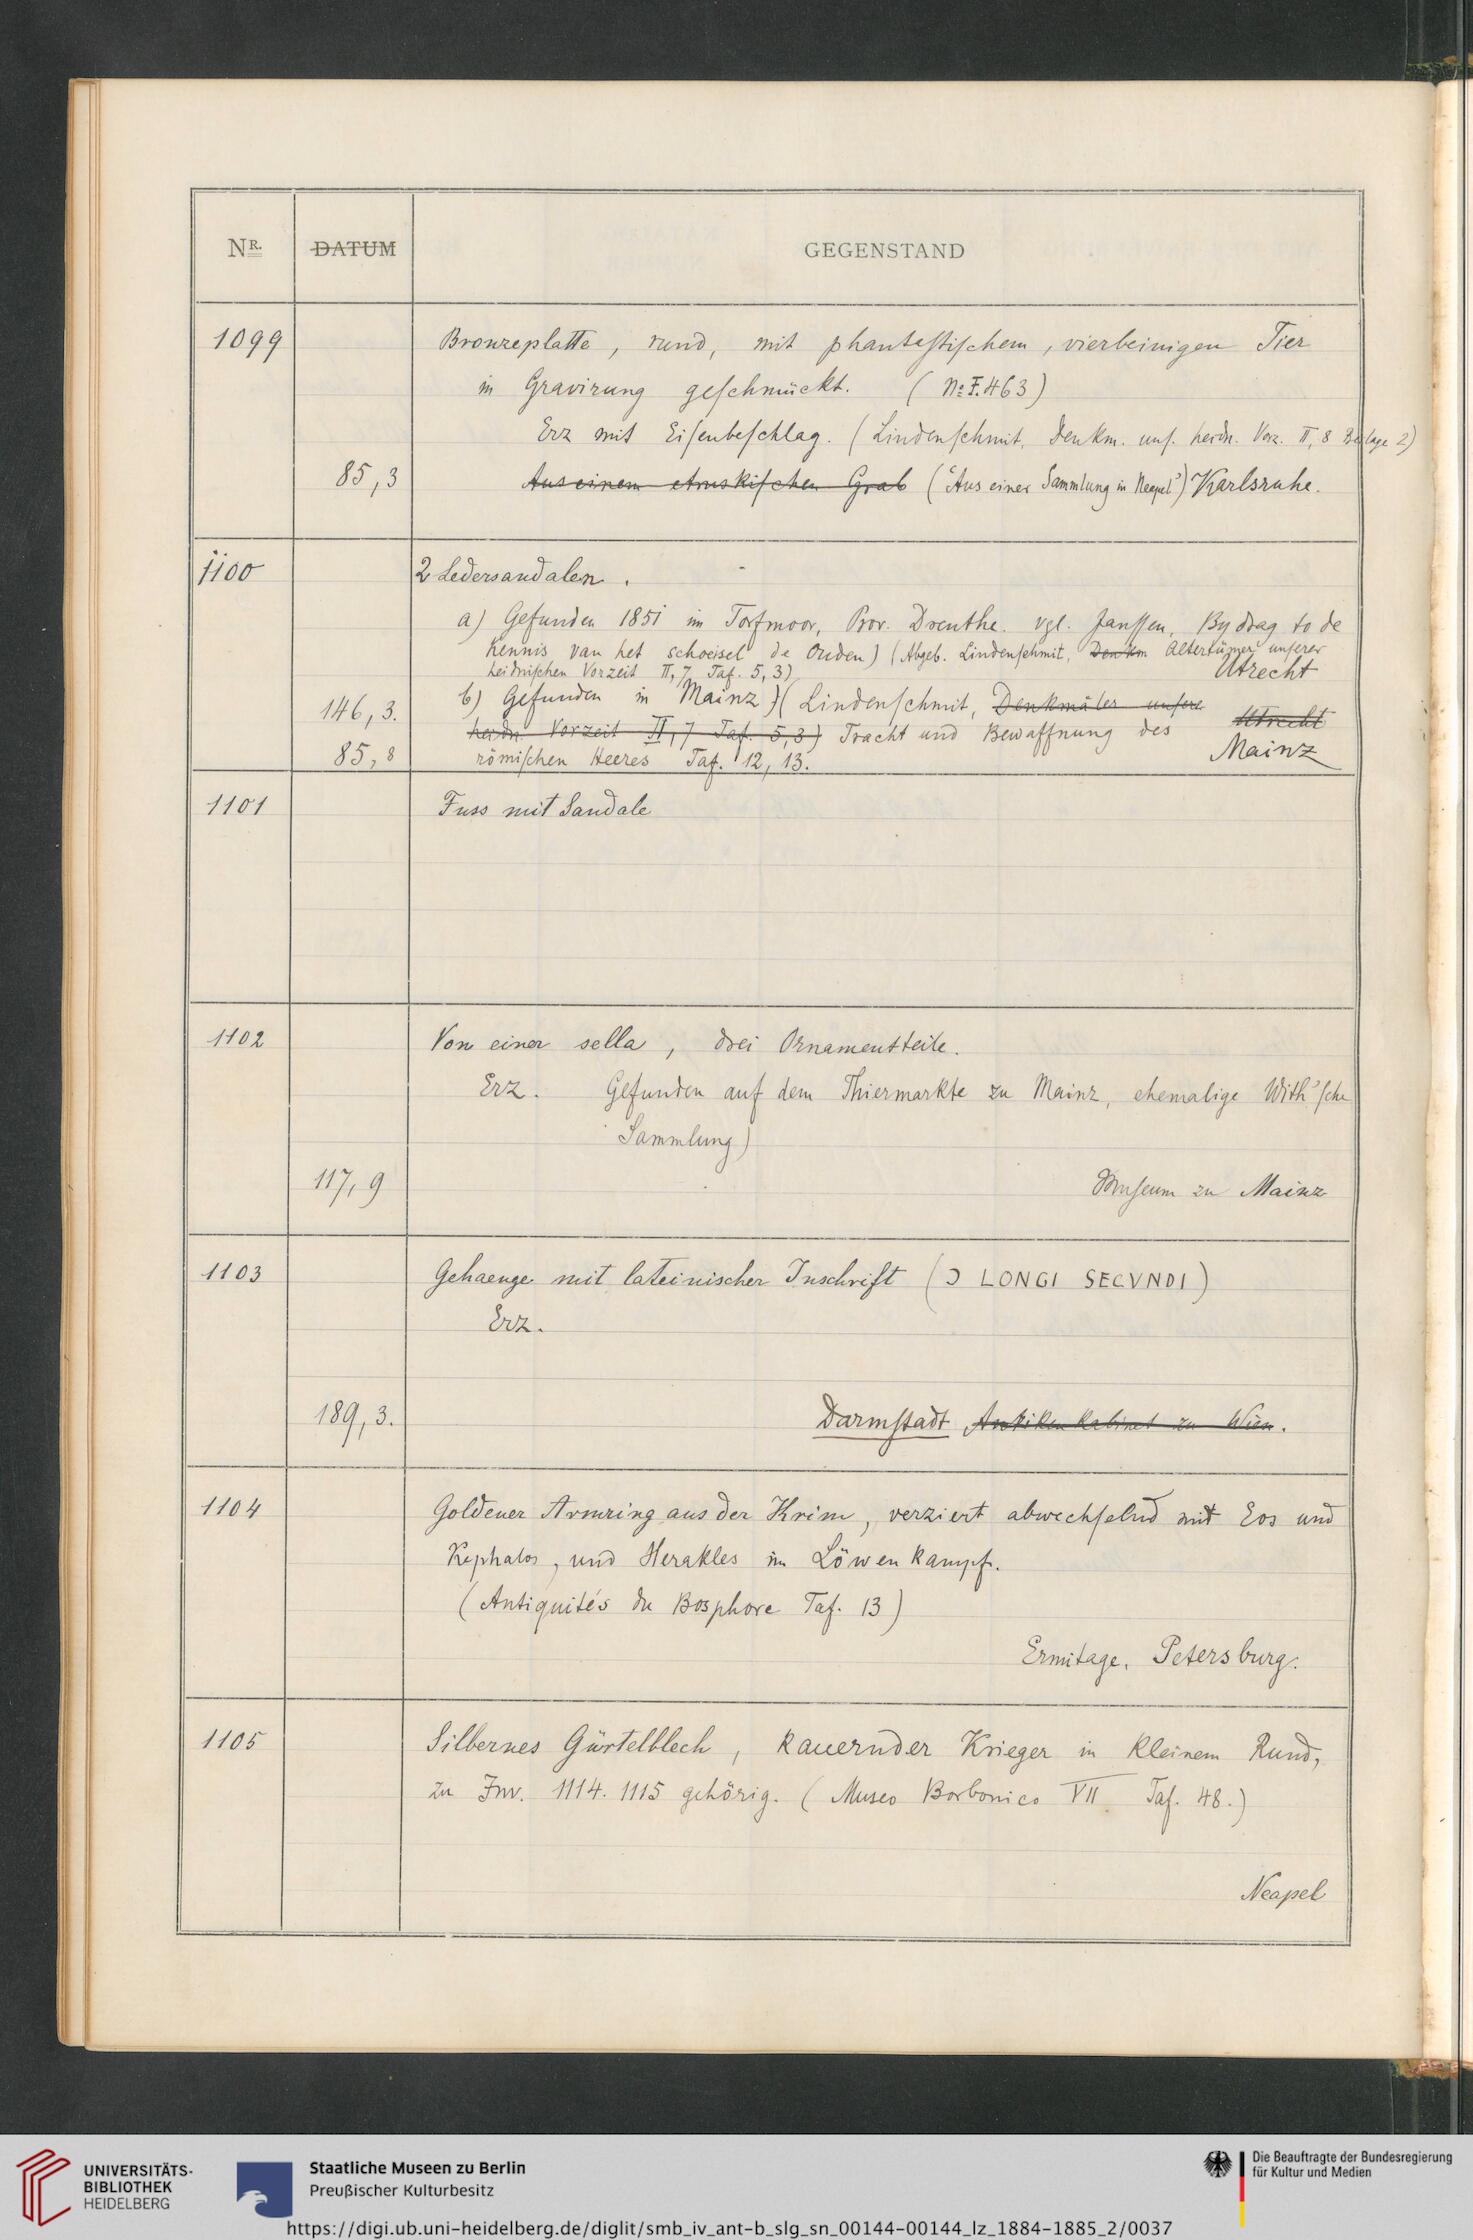 NR. DATUM GEGENSTAND
1099 Bronzeplatte, rund, mit phantastischem, vierbeinigen Tier
in Gravirung geschmückt. (No F. 463)
Erz mit Eisenbeschlag. (Lindenschmit, Denkm. uns. heidn. Vorz. II, 8 Beilage 2)
85,3 Aus einem etruskischen Grab ("Aus einer Sammlung in Neapel") Karlsruhe.
1100 2 Ledersandalen.
a) Gefunden 1851 im Torfmoor, Prov. Drenthe. vgl. Janssen, Bydrag to de
Kennis van het schoeisel de Ouden) (Abgeb. Lindenschmit, Denkm Altertümer unserer
heidnischen Vorzeit II, 7 Taf. 5, 3) Utrecht
146,3. b) Gefunden in Mainz) (Lindenschmit, Denkmäler unsere
heidn. Vorzeit II, 7 Taf. 5, 3) Tracht und Bewaffnung des Utrecht
85,8 römischen Heeres Taf. 12, 13. Mainz
1101 Fuss mit Sandale
1102 Von einer sella, drei Ornamentteile.
Erz. Gefunden auf dem Thiermarkte zu Mainz, ehemalige With'sche
Sammlung)
117,9 Museum zu Mainz
1103 Gehaenge mit lateinischer Inschrift (Ɔ LONGI SECVNDI)
Erz.
189,3. Darmstadt Antikenkabinet zu Wien.
1104 Goldener Armring aus der Krim, verziert abwechselnd mit Eos und
Kephalos, und Herakles im Löwenkampf.
(Antiquités du Bosphore Taf. 13)
Ermitage, Petersburg.
1105 Silbernes Gürtelblech, kauernder Krieger in kleinem Rund,
zu Inv. 1114. 1115 gehörig. (Museo Borbonico VII Taf. 48.)
Neapel
UNIVERSITÄTS-
BIBLIOTHEK
HEIDELBERG
Staatliche Museen zu Berlin
Preußischer Kulturbesitz
Die Beauftragte der Bundesregierung
für Kultur und Medien
https://digi.ub.uni-heidelberg.de/diglit/smb_iv_ant-b_slg_sn_00144-00144_lz_1884-1885_2/0037